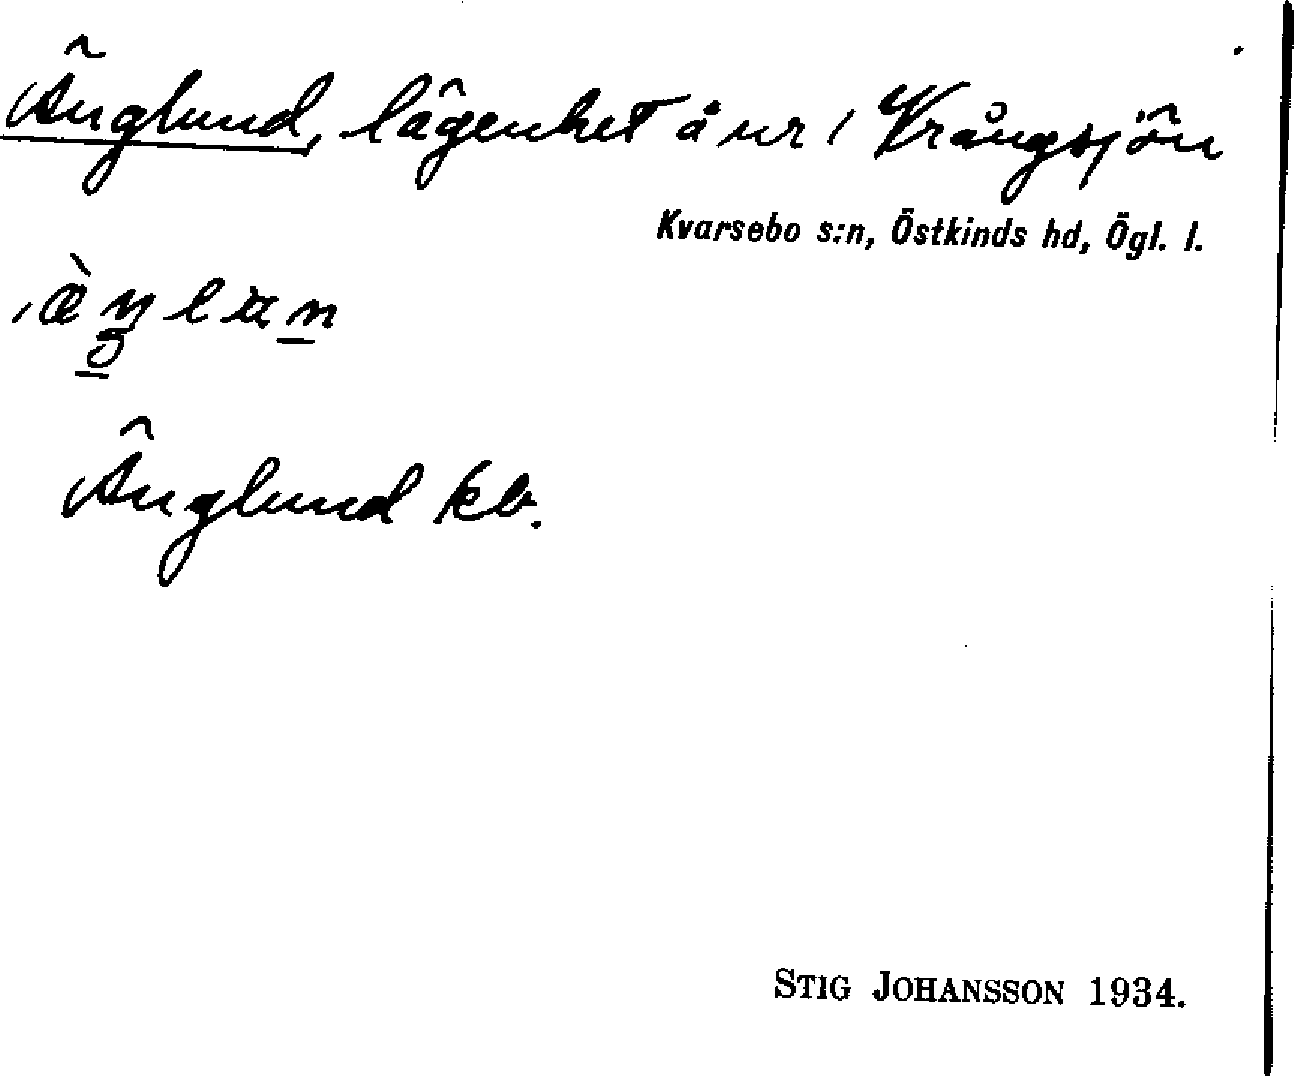 Änglund, lägenhet å nr 1 Vrångsjön
Kvarsebo s:n, Östkinds hd, Ögl. l.
Änglund kb.
STIG JOHANSSON 1934.